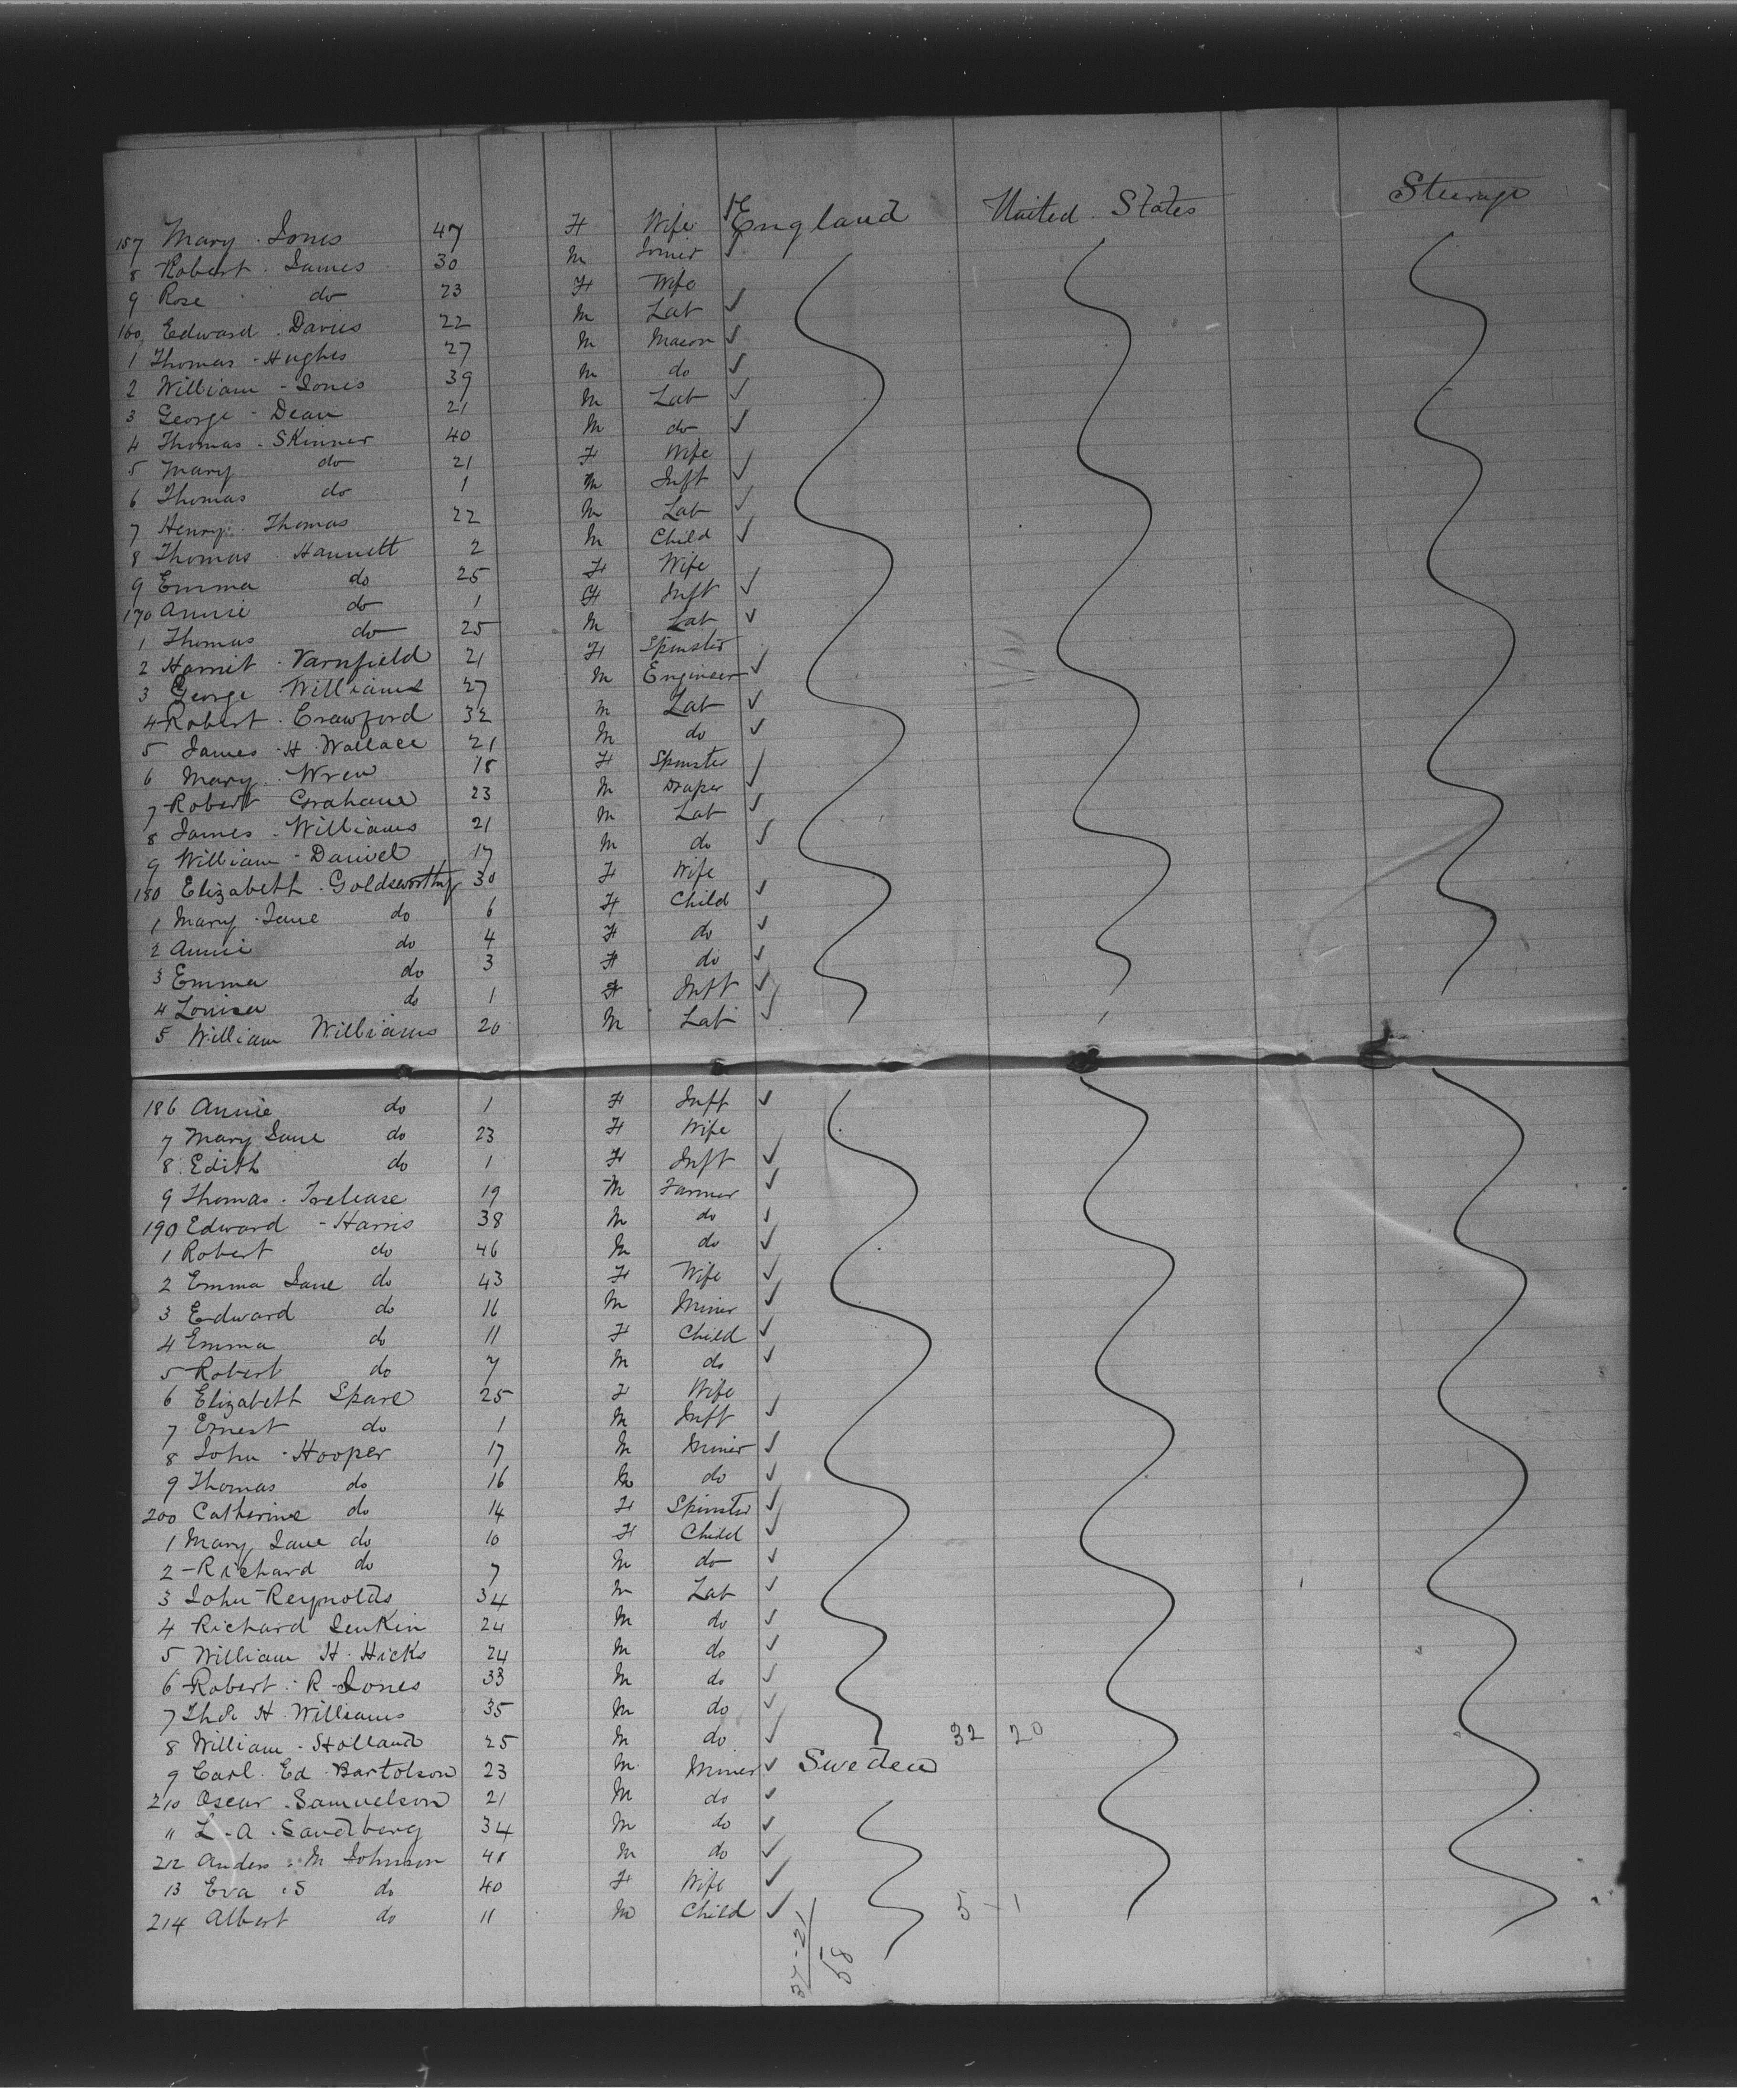 157 Mary Jones 47 F Wife England United States Steerage
8 Robert James 30 M Joiner
9 Rose do 23 F Wife
160 Edward Davies 22 M Lab
1 Thomas Hughes 27 M Mason
2 William Jones 39 M do
3 George Dean 21 M Lab
4 Thomas Skinner 40 M do
5 Mary do 21 F Wife
6 Thomas do 1 M Inft
7 Henry Thomas 22 M Lab
8 Thomas Hannett 2 M Child
9 Emma do 25 F Wife
170 Annie do 1 F Inft
1 Thomas do 25 M Lab
2 Harriet Varnfield 21 F Spinster
3 George Williams 27 M Engineer
4 Robert Crawford 32 M Lab
5 James H Wallace 21 M do
6 Mary Wren 18 F Spinster
7 Robert Grahame 23 M Draper
8 James Williams 21 M Lab
9 William Daniel 17 M do
180 Elizabeth Goldsworthy 30 F Wife
1 Mary Jane do 6 F Child
2 Annie do 4 F do
3 Emma do 3 F do
4 Louisa do 1 F Inft
5 William Williams 20 M Lab
186 Annie do 1 F Inft
7 Mary Jane do 23 F Wife
8 Edith do 1 F Inft
9 Thomas Trelease 19 M Farmer
190 Edward Harris 38 M do
1 Robert do 46 M do
2 Emma Jane do 43 F Wife
3 Edward do 16 M Miner
4 Emma do 11 F Child
5 Robert do 7 M do
6 Elizabeth Spare 25 F Wife
7 Ernest do 1 M Inft
8 John Hooper 17 M Miner
9 Thomas do 16 M do
200 Catherine do 14 F Spinster
1 Mary Jane do 10 F Child
2 Richard do 7 M do
3 John Reynolds 34 M Lab
4 Richard Jenkin 24 M do
5 William H Hicks 24 M do
6 Robert R Jones 33 M do
7 H Williams 35 M do
8 William Holland 25 M do 32 20
9 Carl Ed Bartolson 23 M Miner Sweden
210 Oscar Samuelson 21 M do
11 L A Sandberg 34 M do
212 Anders M Johnson 41 M do
13 Eva S do 40 F Wife
214 Albert do 11 M Child 5 - 1
37-21
58